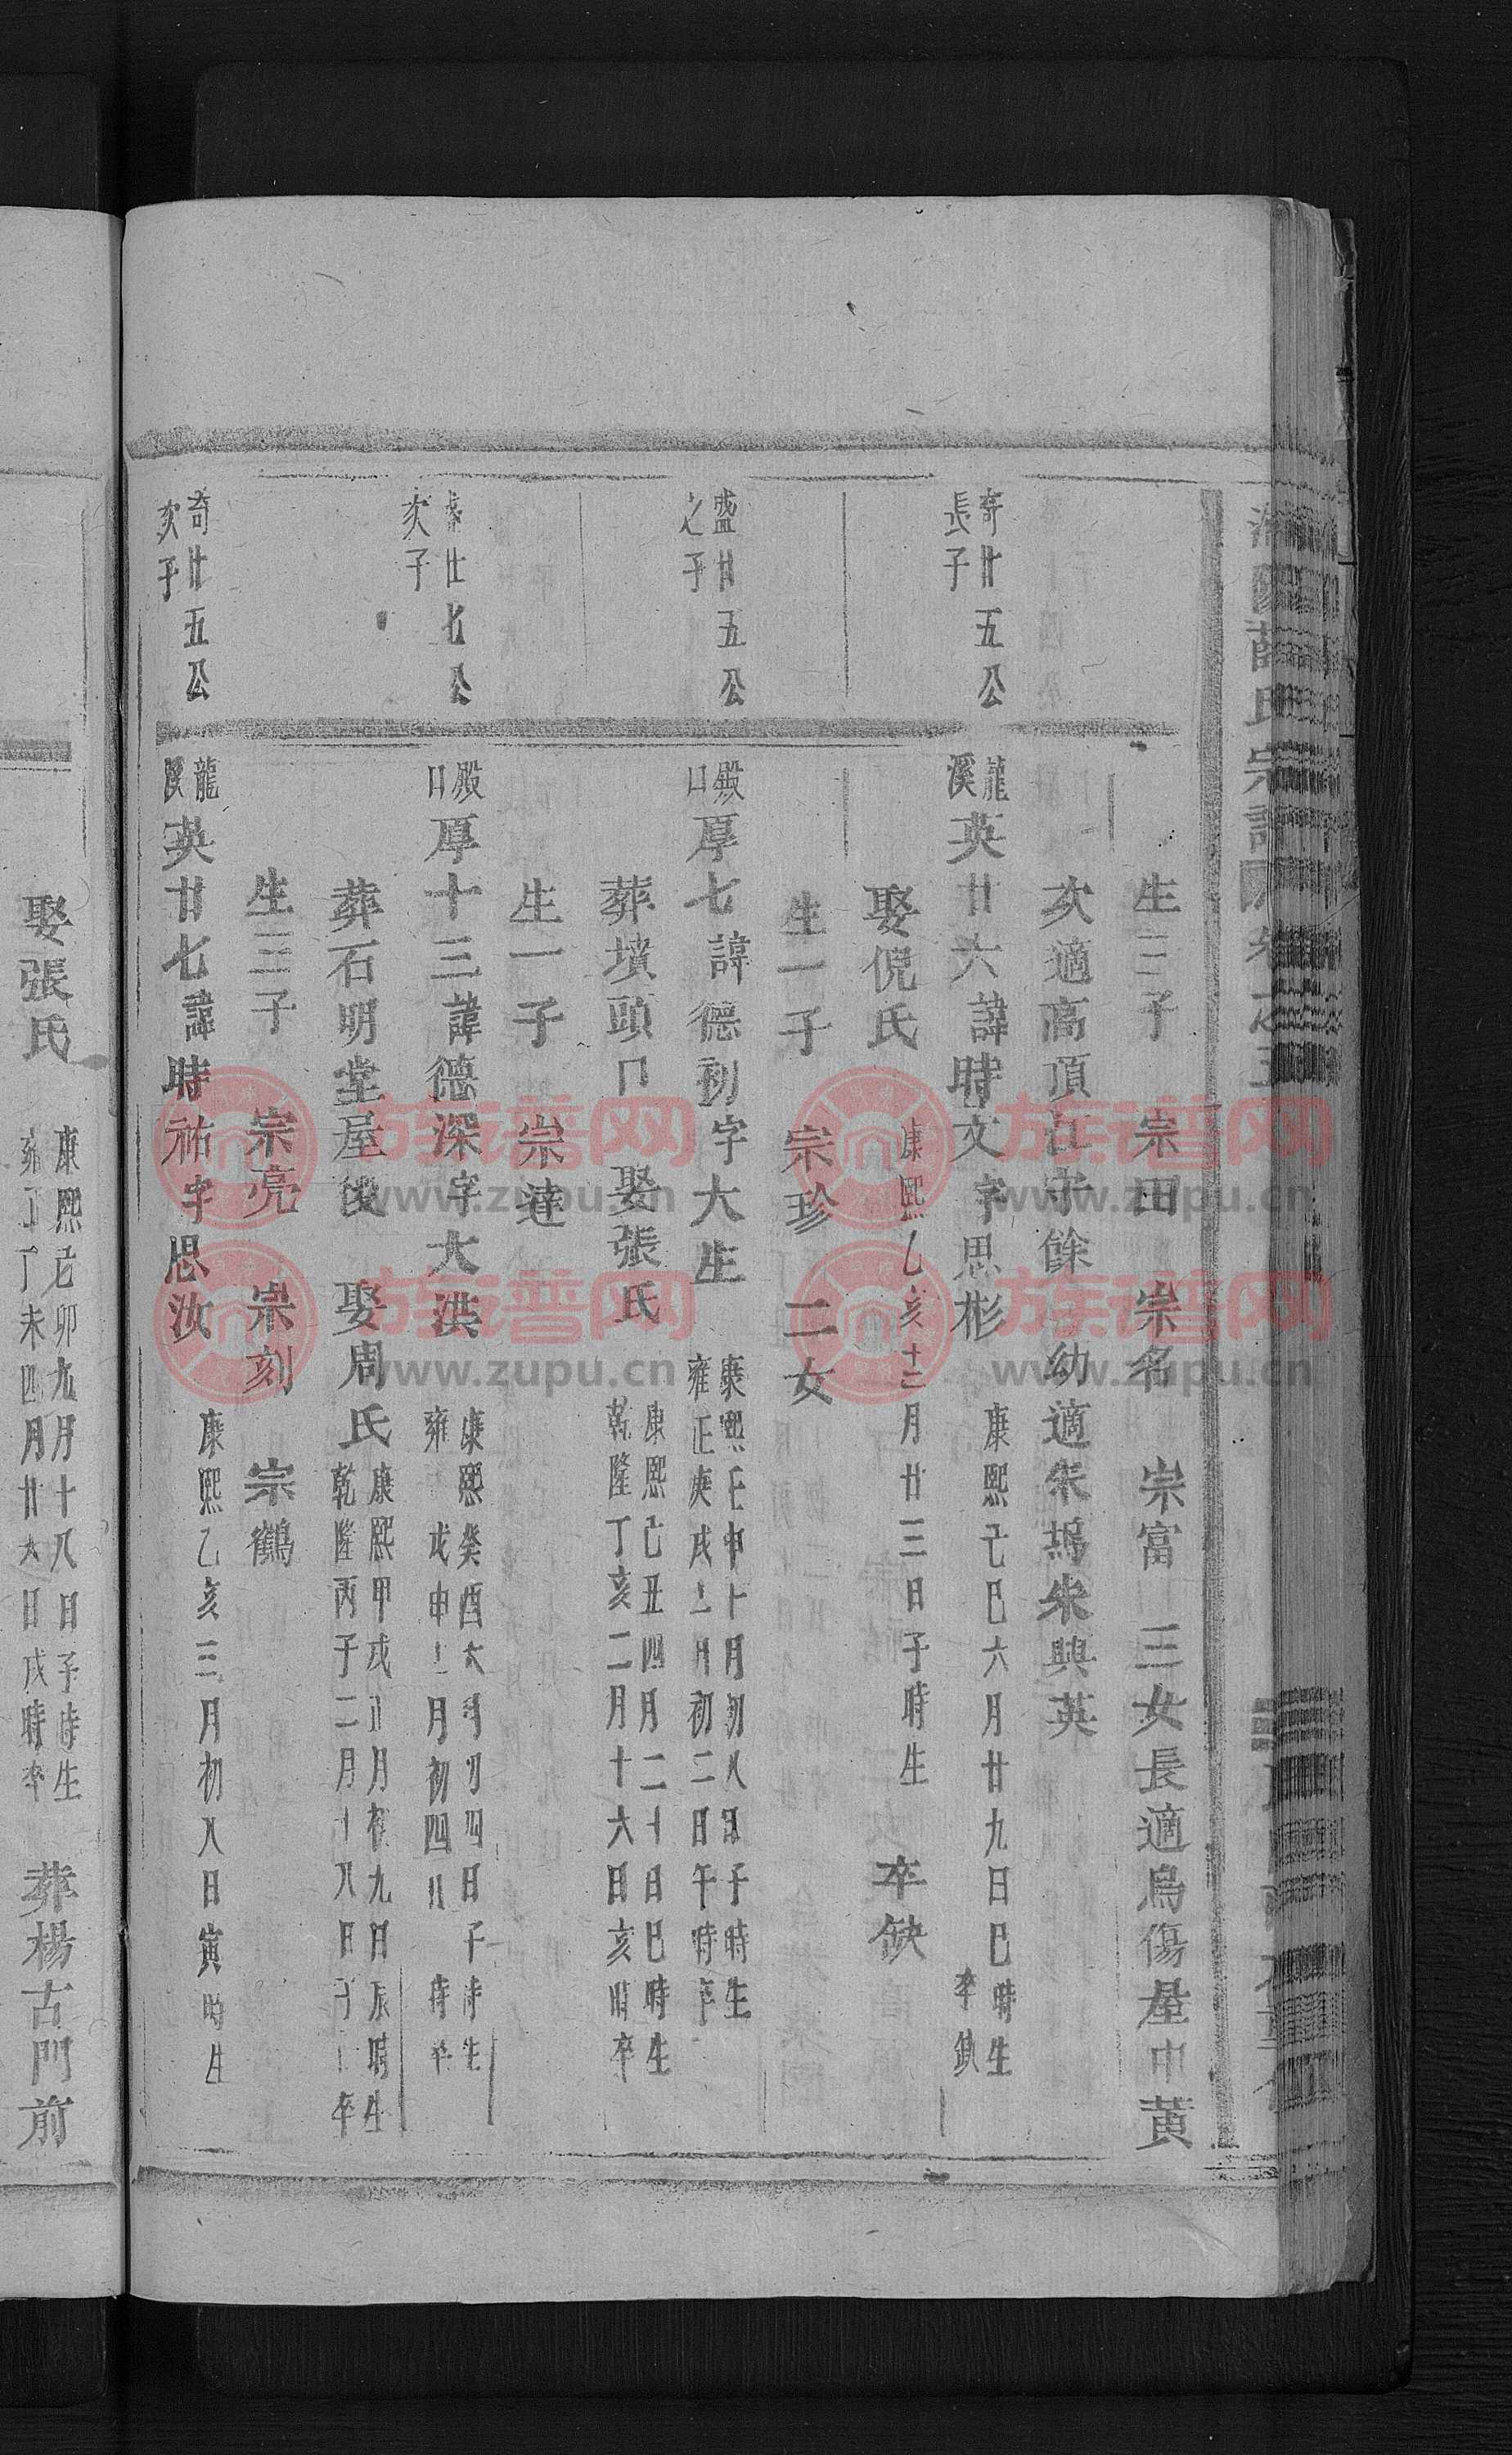 薛氏宗譜
生三子 宗田 宗名 宗富 三女長適烏傷 巾黃
次適高頂江守餘 幼適朱塢朱興英
奇廿五公
長子
龍溪英廿六諱時文字思彬
康熙 巳六月廿九日巳時生
卒缺
娶倪氏 康熙乙亥十二月廿三日子時生 卒缺
生一子 宗珍 二女
盛廿五公
之子
殿口厚七諱德初字大生
康熙壬申十月初八日子時生
雍正庚戌 月初二日午時卒
葬墳頭 娶張氏
康熙己丑四月二十日巳時生
乾隆丁亥二月十六日亥時卒
生一子 宗達
廿七公
次子
殿口厚十三諱德深字大洪
康熙癸酉六月初四日子時生
雍 戊申 月初四日 時卒
葬石明堂屋後 娶周氏
康熙甲戌 月初九日辰時生
乾隆丙子二月十八日子 卒
生三子 宗亮 宗刻 宗鶴
奇廿五公
次子
龍溪英廿七諱時祐字思汝
康熙乙亥三月初八日寅時生
娶張氏
康熙己卯九月十八日子時生
雍 丁未四月廿六日戌時卒
葬楊古門前
族譜网
www.zupu.cn
族譜网
www.zupu.cn
族譜网
www.zupu.cn
族譜网
www.zupu.cn